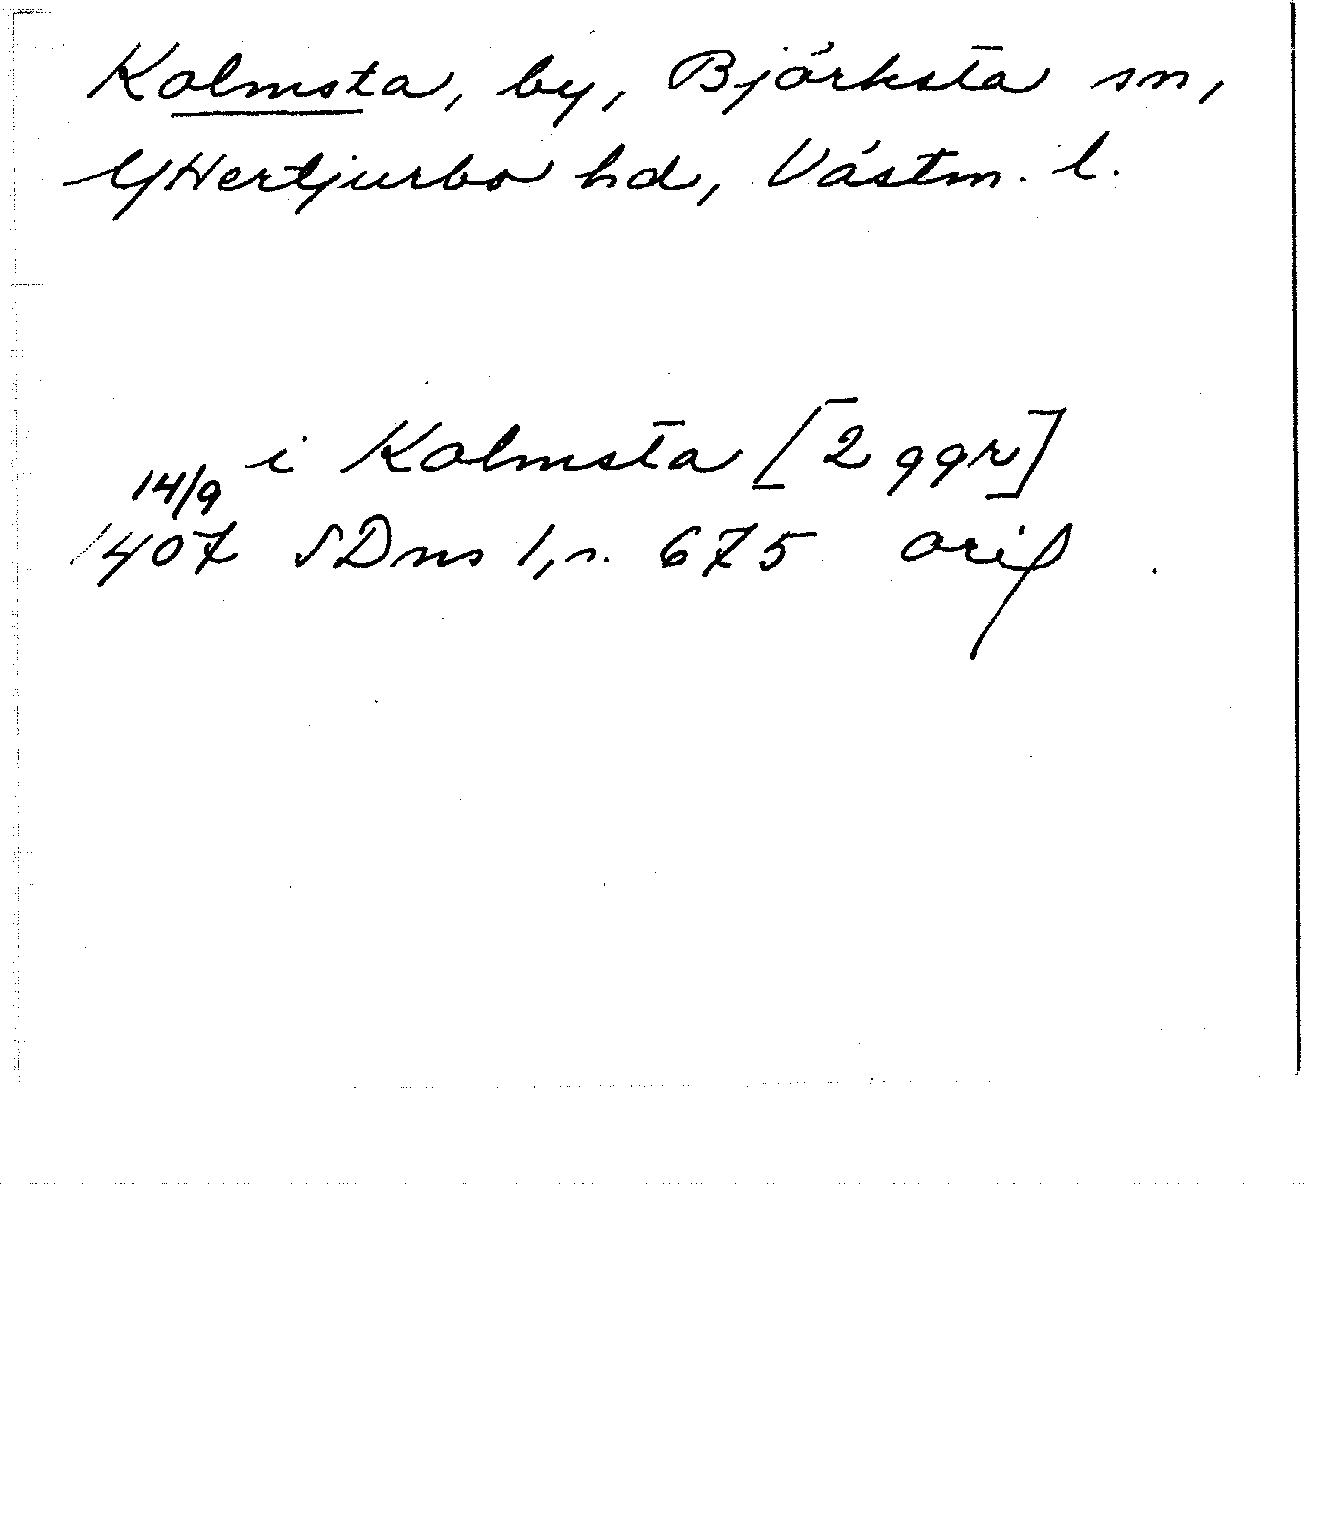 Kolmsta, by, Björksta sn,
Yttertjurbo hd, Västm. l.
i Kolmsta [2 ggr]
14/9
1407 SDns 1, s. 675 orig